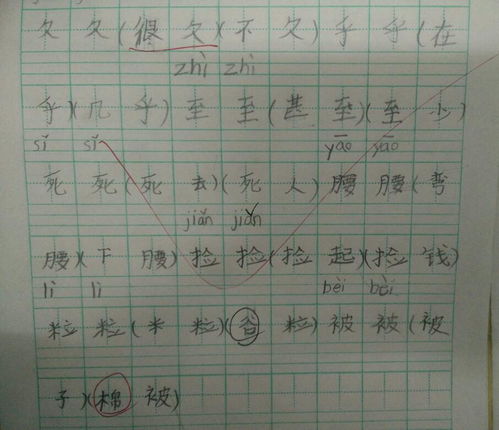 久久(很久)(不久)乎乎(在
zhì zhì
乎)(几乎)至至(甚至)(至少)
sǐ sǐ yāo yāo
死死(死去)(死人)腰腰(弯
jiǎn jiǎn
腰)(下腰)捡捡(捡起)(捡钱)
lì lì bèi bèi
粒粒(米粒)(谷粒)被被(被
子)(棉被)